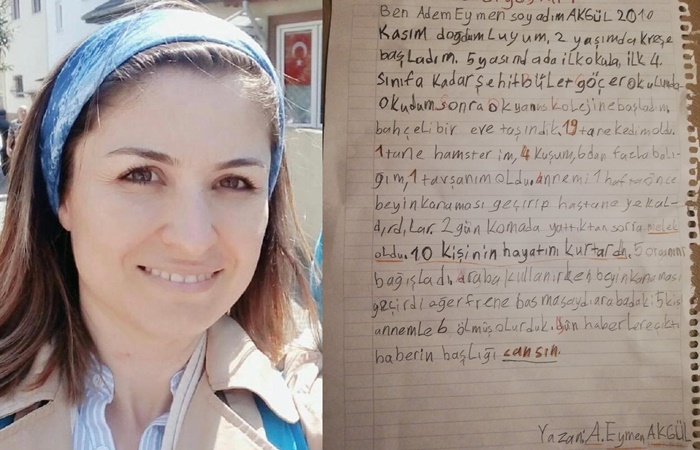 Ben Adem Eymen soyadım AKGÜL 2010
Kasım doğdumluyum, 2 yaşımda kreşe
başladım. 5 yaşındada ilkokula, ilk 4.
sınıfa kadar şehit Bület göçer okulunda
okudum sonra okyanus kolejine başladım
bahçeli bir eve taşındık. 19 tane kedim oldu.
1 tane hamsterim, 4 kuşum, 6dan fazla balı-
ğım, 1 tavşanım oldu. annemi 1 hafta önce
beyin kanaması geçirip hastaneye kal-
dırdılar. 2 gün komada yattıktan sorra melek
oldu. 10 kişinin hayatını kurtardı. 5 organını
bağışladı, araba kullanırken beyin kanaması
geçirdi ağer frene basmasaydı arabadaki 5 kişi
annemle 6 ölmüş olurduk. haberlere çıktı
haberin başlığı cansın.
Yazan: A. Eymen AKGÜL